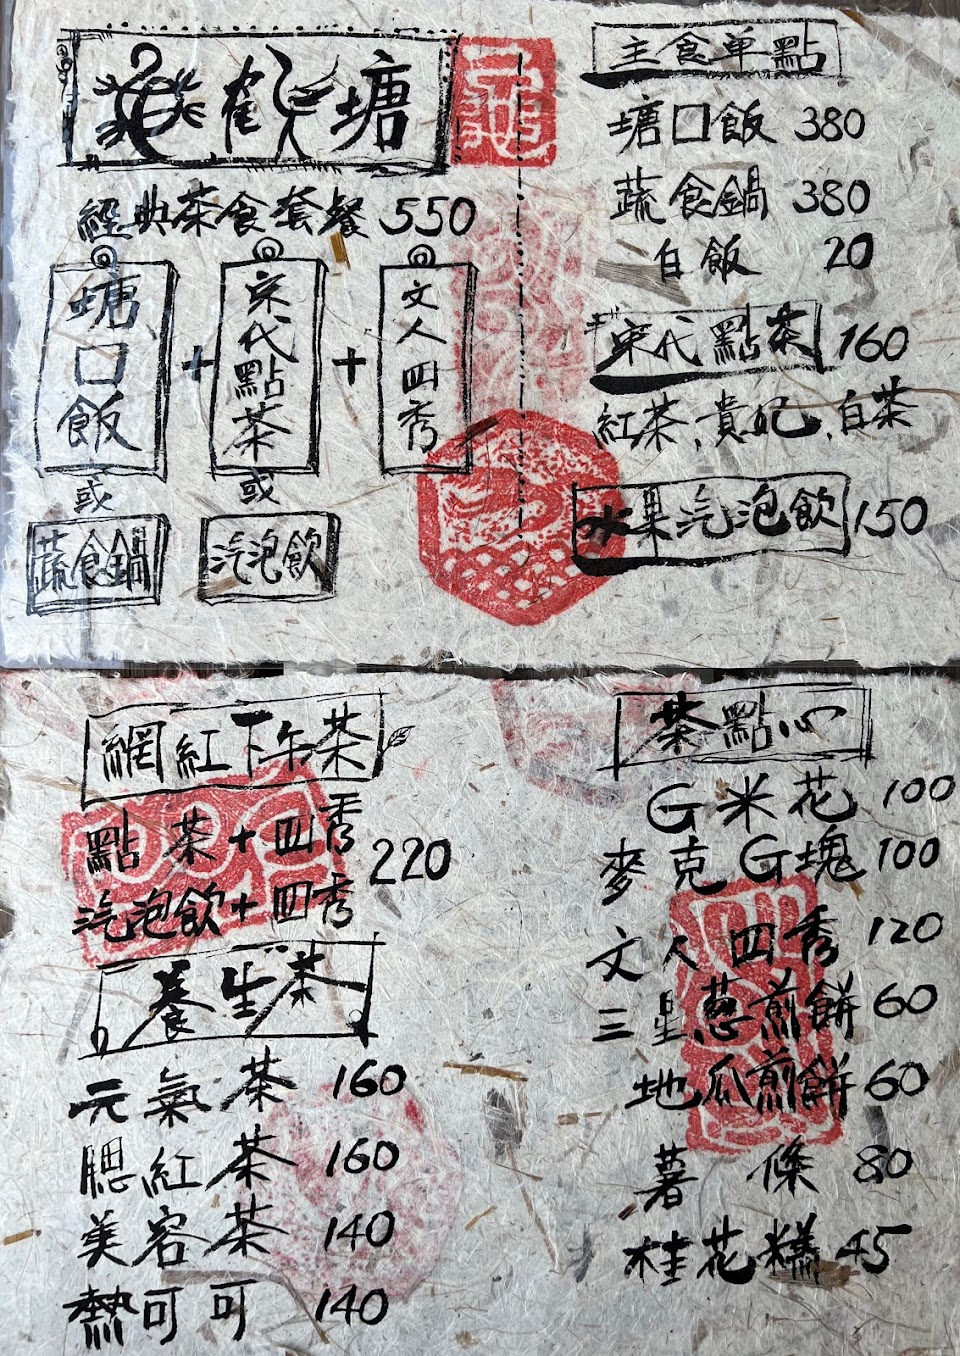 龜鶴塘
經典茶食套餐 550
塘口飯 + 宋代點茶 + 文人四秀
或 或
蔬食鍋 汽泡飲
主食单點
塘口飯 380
蔬食鍋 380
白飯 20
宋代點茶 160
紅茶、貴妃、白茶
水果汽泡飲 150
網紅下午茶
點茶+四秀
220
汽泡飲+四秀
養生茶
元氣茶 160
腮紅茶 160
美容茶 140
熱可可 140
茶點心
G米花 100
麥克G塊 100
文人四秀 120
三星葱煎餅 60
地瓜煎餅 60
薯條 80
桂花糕 45